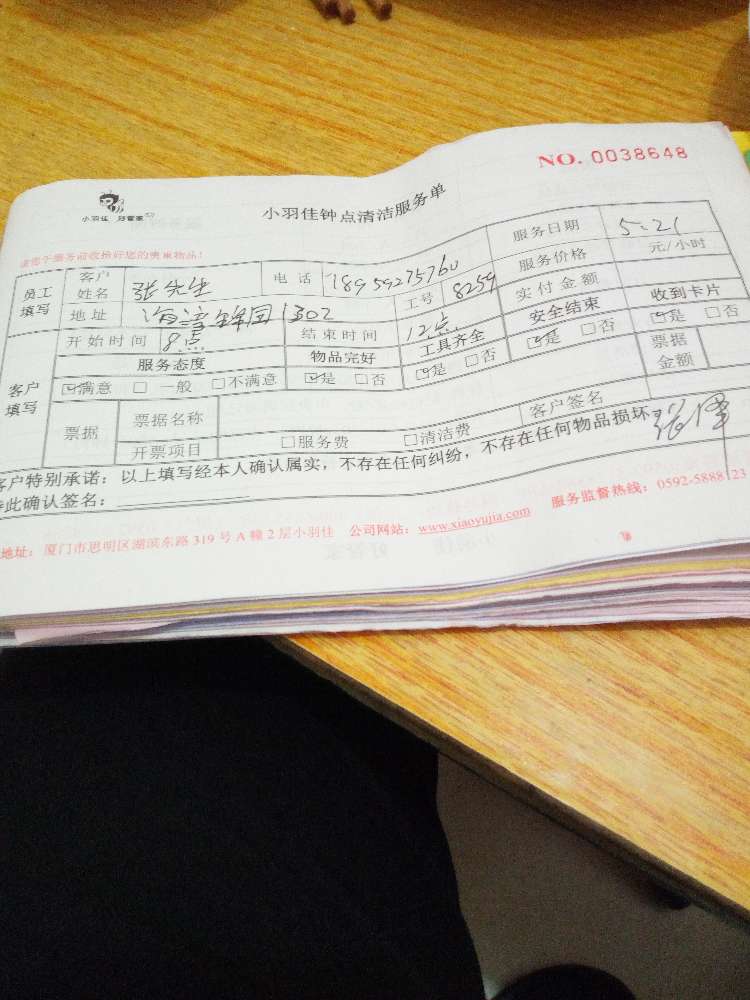 NO. 0038648
小羽佳 好管家
小羽佳钟点清洁服务单
员工填写 客户姓名 张先生 电话 18959275760 服务日期 5.21
地址 1302 工号 8259 服务价格 元/小时
开始时间 8点 结束时间 12点 实付金额
客户填写 服务态度 物品完好 工具齐全 安全结束 收到卡片
☑满意 □一般 □不满意 ☑是 □否 ☑是 □否 ☑是 □否 ☑是 □否
票据 票据名称 票据金额
开票项目 □服务费 □清洁费 客户签名
客户特别承诺：以上填写经本人确认属实，不存在任何纠纷，不存在任何物品损坏
特此确认签名：
地址：厦门市思明区湖滨东路319号A幢2层小羽佳 公司网站：www.xiaoyujia.com 服务监督热线：0592-5888123